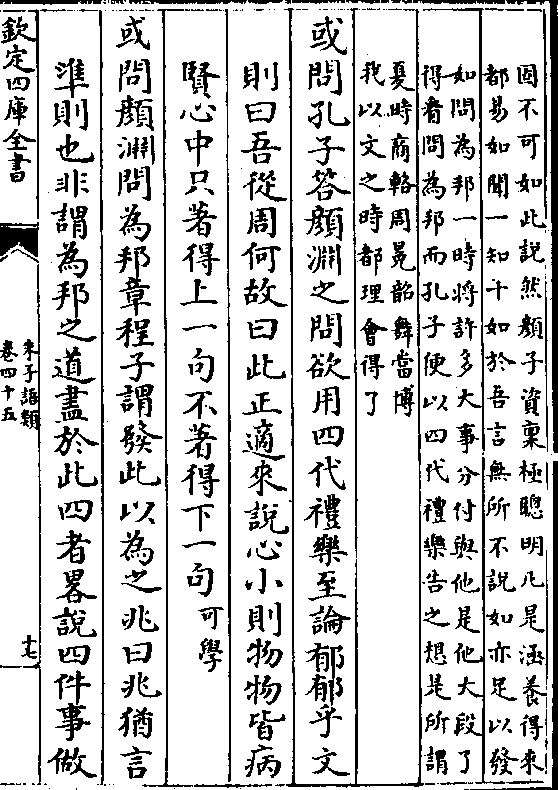 固不可如此説然顔子資稟極聰明凡是涵養得來
都易如聞一知十如於吾言無所不說如亦足以發
如問為邦一時將許多大事分付與他是他大段了
得看問為邦而孔子便以四代禮樂告之想是所謂
夏時商輅周冕韶舞當博
我以文之時都理會得了
或問孔子答顔淵之問欲用四代禮樂至論郁郁乎文
則曰吾從周何故曰此正適來說心小則物物皆病
賢心中只著得上一句不著得下一句可學
或問顔淵問為邦章程子謂發此以為之兆曰兆猶言
準則也非謂為邦之道盡於此四者畧說四件事做
欽定四庫全書
朱子語類
卷四十五
十七